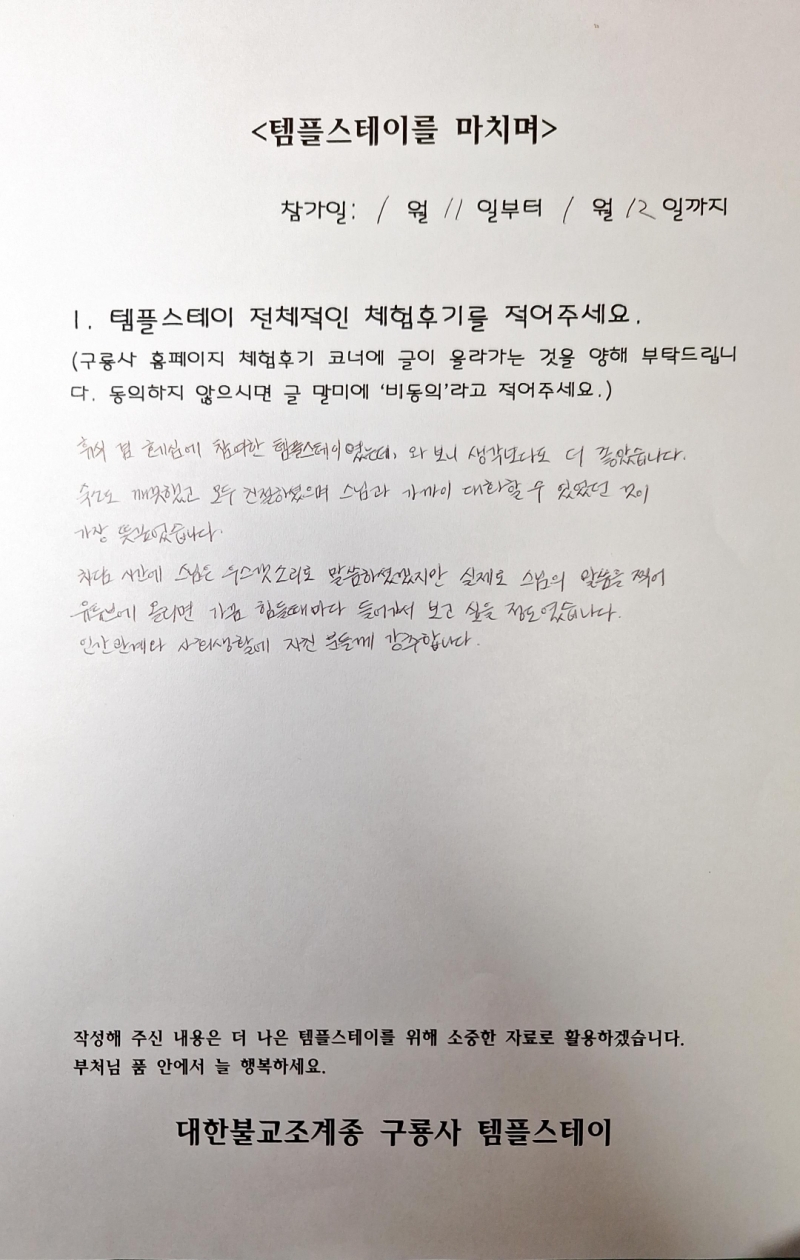 <템플스테이를 마치며>
참가일: 1 월 11 일부터 1 월 12 일까지
1. 템플스테이 전체적인 체험후기를 적어주세요.
(구룡사 홈페이지 체험후기 코너에 글이 올라가는 것을 양해 부탁드립니
다. 동의하지 않으시면 글 말미에 '비동의'라고 적어주세요.)
휴식 겸 호기심에 참여한 템플스테이였는데, 와 보니 생각보다도 더 좋았습니다.
숙소도 깨끗했고 모두 친절하셨으며 스님과 가까이 대화할 수 있었던 것이
가장 뜻깊었습니다.
차담 시간에 스님은 우스갯소리로 말씀하셨겠지만 실제로 스님의 말씀을 찍어
유튜브에 올리면 가끔 힘들때마다 들어가서 보고 싶을 정도였습니다.
인간관계와 사회생활에 지친 분들께 강추합니다.
작성해 주신 내용은 더 나은 템플스테이를 위해 소중한 자료로 활용하겠습니다.
부처님 품 안에서 늘 행복하세요.
대한불교조계종 구룡사 템플스테이